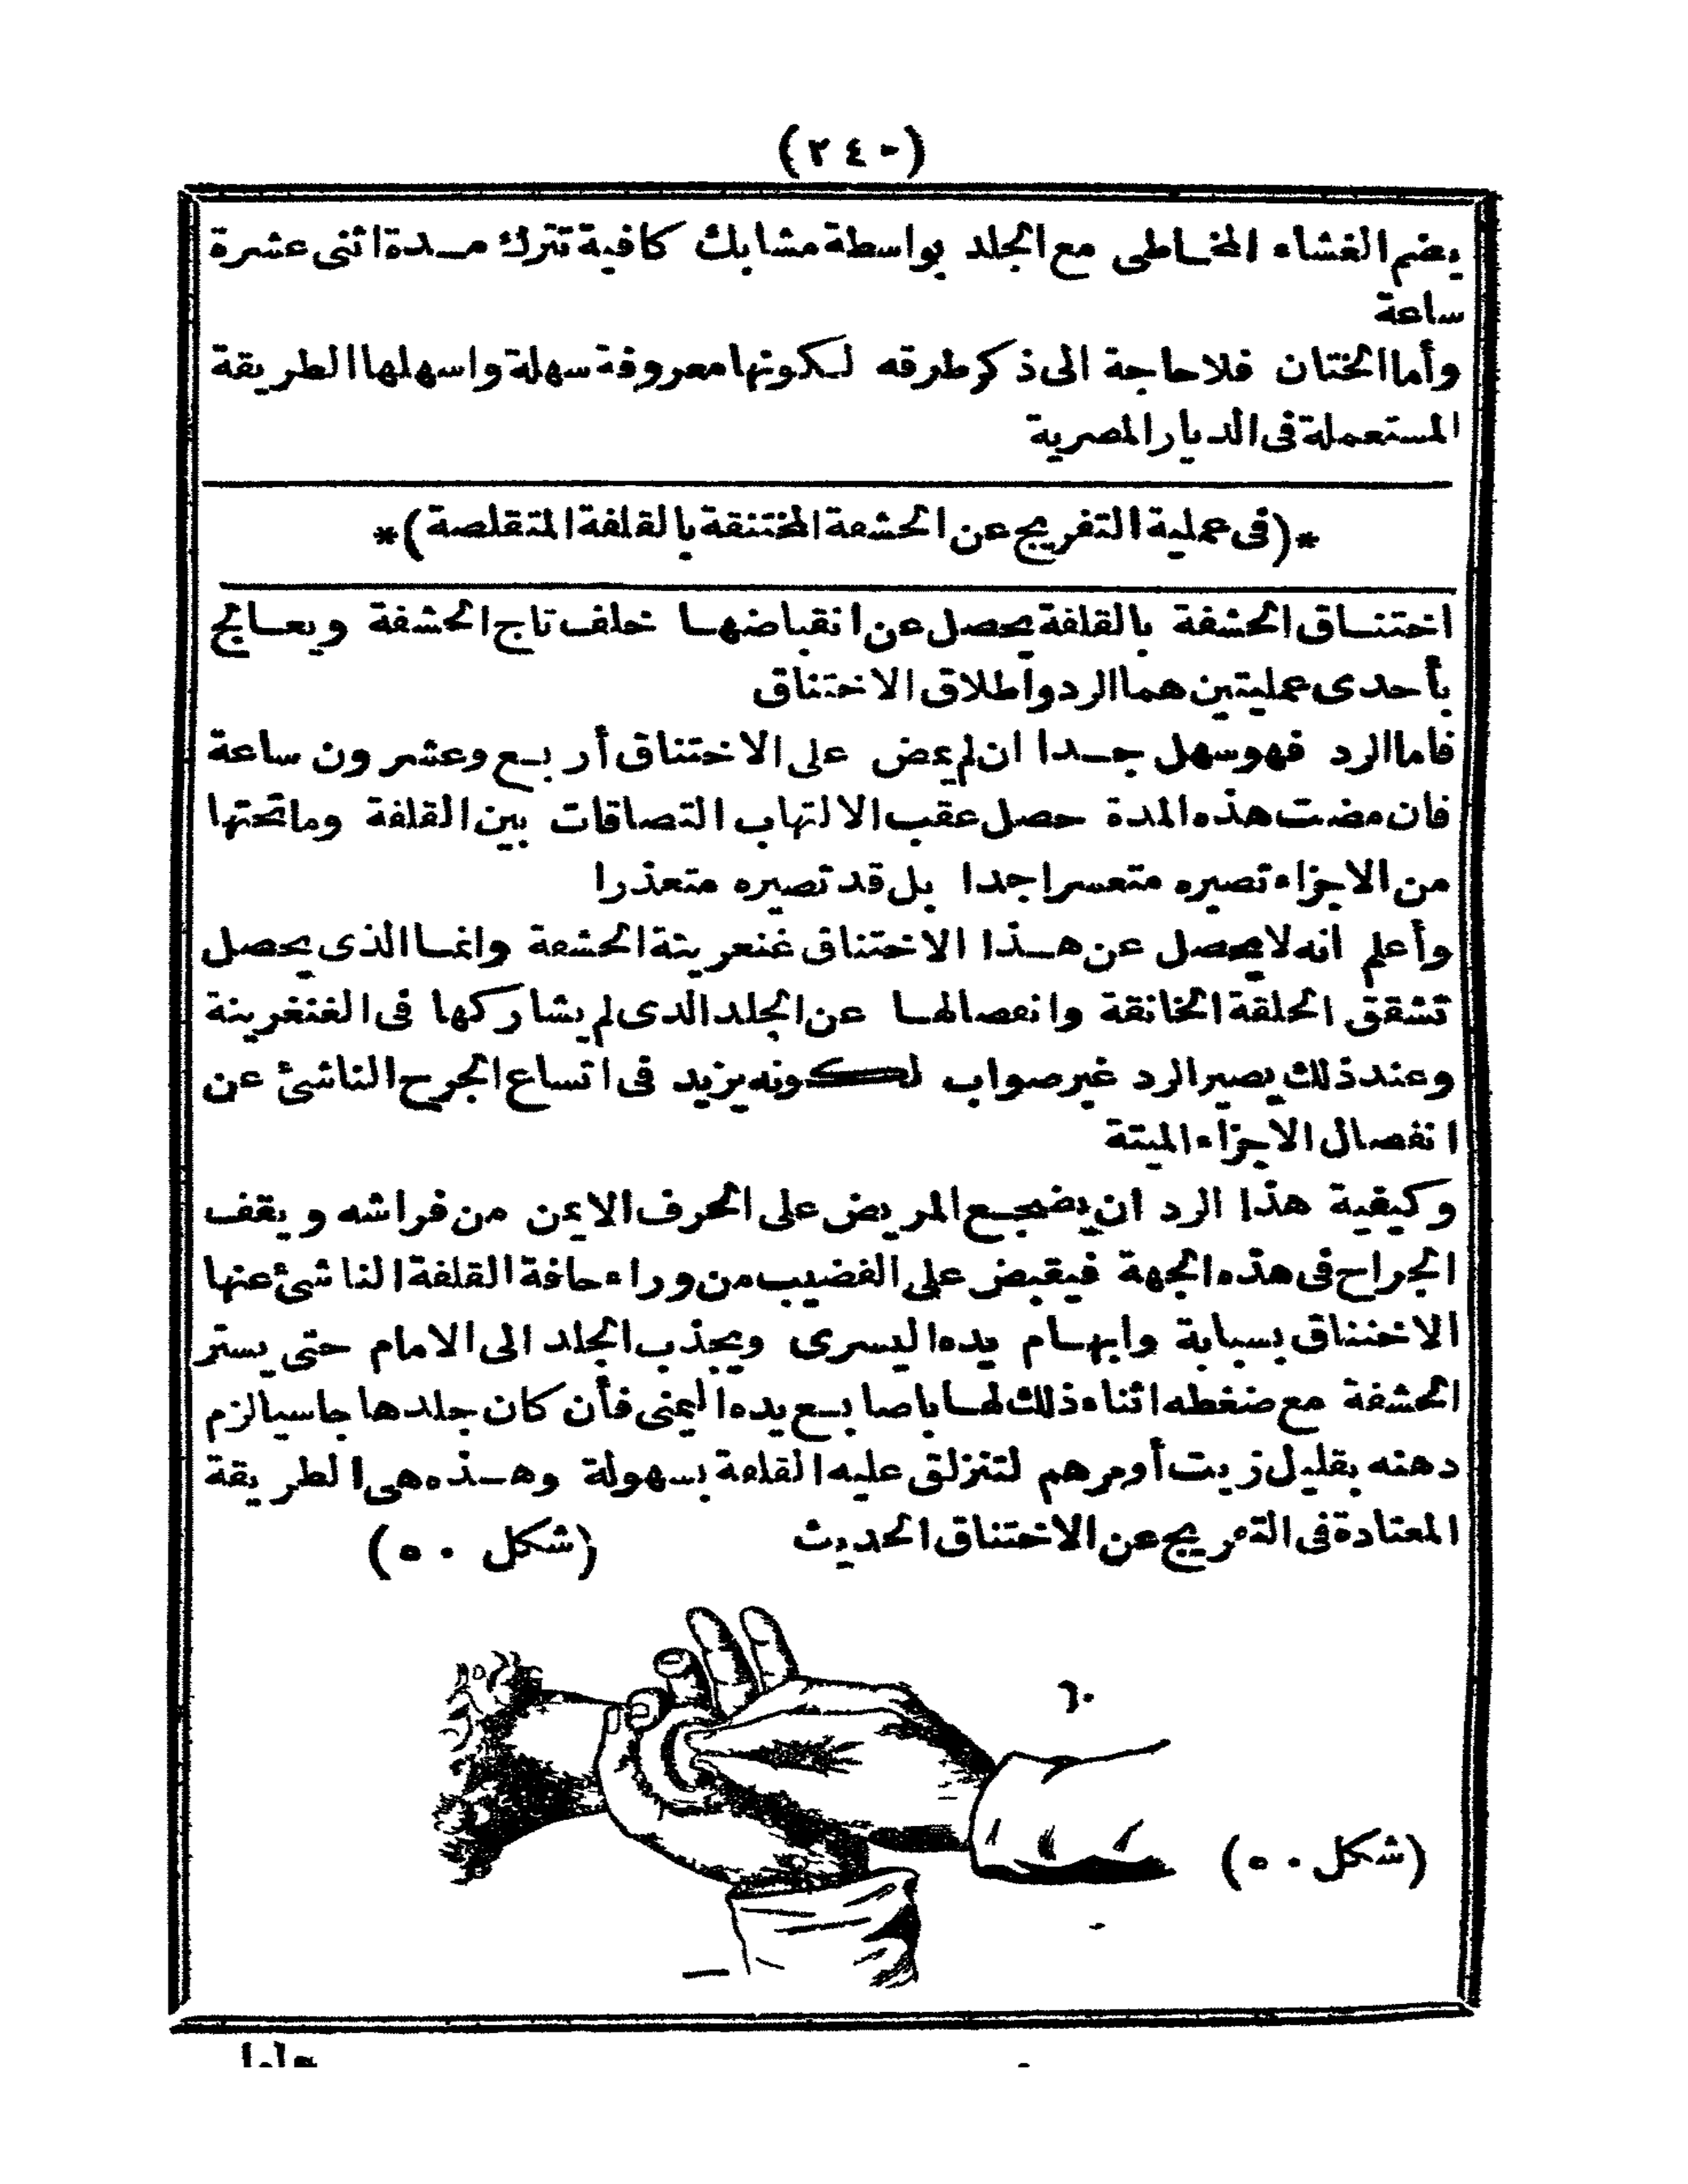 (٢٤٠)
يضم الغشاء المخاطى مع الجلد بواسطة مشابك كافية تترك مدة اثنى عشرة
ساعة
وأما الختان فلا حاجة الى ذكر طرقه لكونها معروفة سهلة واسهلها الطريقة
المستعملة فى الديار المصرية
*(فى عملية التفريج عن الحشفة المختنقة بالقلفة المتقلصة)*
اختناق الحشفة بالقلفة يحصل عن انقباضها خلف تاج الحشفة ويعالج
بأحدى عمليتين هما الرد وأطلاق الاختناق
فاما الرد فهو سهل جدا ان لم يمض على الاختناق أربع وعشرون ساعة
فان مضت هذه المدة حصل عقب الالتهاب التصاقات بين القلفة وما تحتها
من الاجزاء تصيره متعسرا جدا بل قد تصيره متعذرا
وأعلم انه لا يحصل عن هذا الاختناق غنغرينة الحشفة وانما الذى يحصل
تشقق الحلقة الخانقة وانفصالها عن الجلد الذى لم يشاركها فى الغنغرينة
وعند ذلك يصير الرد غير صواب لكونه يزيد فى اتساع الجرح الناشئ عن
انفصال الاجزاء الميتة
وكيفية هذا الرد ان يضجع المريض على الحرف الايمن من فراشه ويقف
الجراح فى هذه الجهة فيقبض على القضيب من وراء حافة القلفة الناشئ عنها
الاختناق بسبابة وابهام يده اليسرى ويجذب الجلد الى الامام حتى يستر
الحشفة مع ضغطه اثناء ذلك لها باصابع يده اليمنى فأن كان جلدها جاسيا لزم
دهنه بقليل زيت أو مرهم لتنزلق عليه القلفة بسهولة وهذه هى الطريقة
المعتادة فى التفريج عن الاختناق الحديث (شكل ٥٠)
(شكل ٥٠)